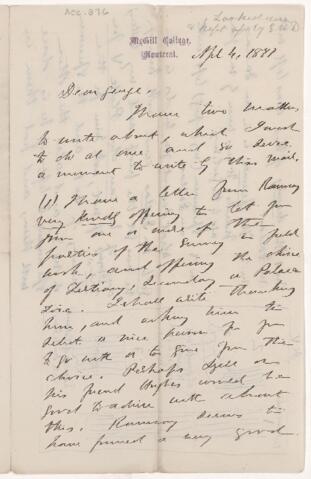 Acc. 376
McGill College,
Montreal.
Apl 4, 1881
Dear George,
I have two matters
to write about, which I want
to do at once, and so seize
a moment to write by this mail.
(1) I have a letter from Ramsay
very kindly offering to let you
join one or more of the
parties of the Survey in field
work, and offering the choice
of Tertiary, Secondary or Palaeo
zoic. I shall write thanking
him, and asking him to
select a nice person for you
to go with or to give you the
choice. Perhaps Lyell or
his friend Hughes would be
good to advise with about
this. Ramsay seems to
have formed a very good